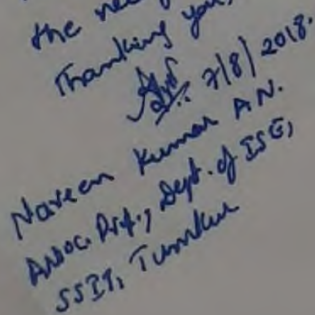 the nee
Thanking you,
7/8/2018.
Naveen Kumar A.N.
Assoc. Prof., Dept. of ISE,
SSIT, Tumkur